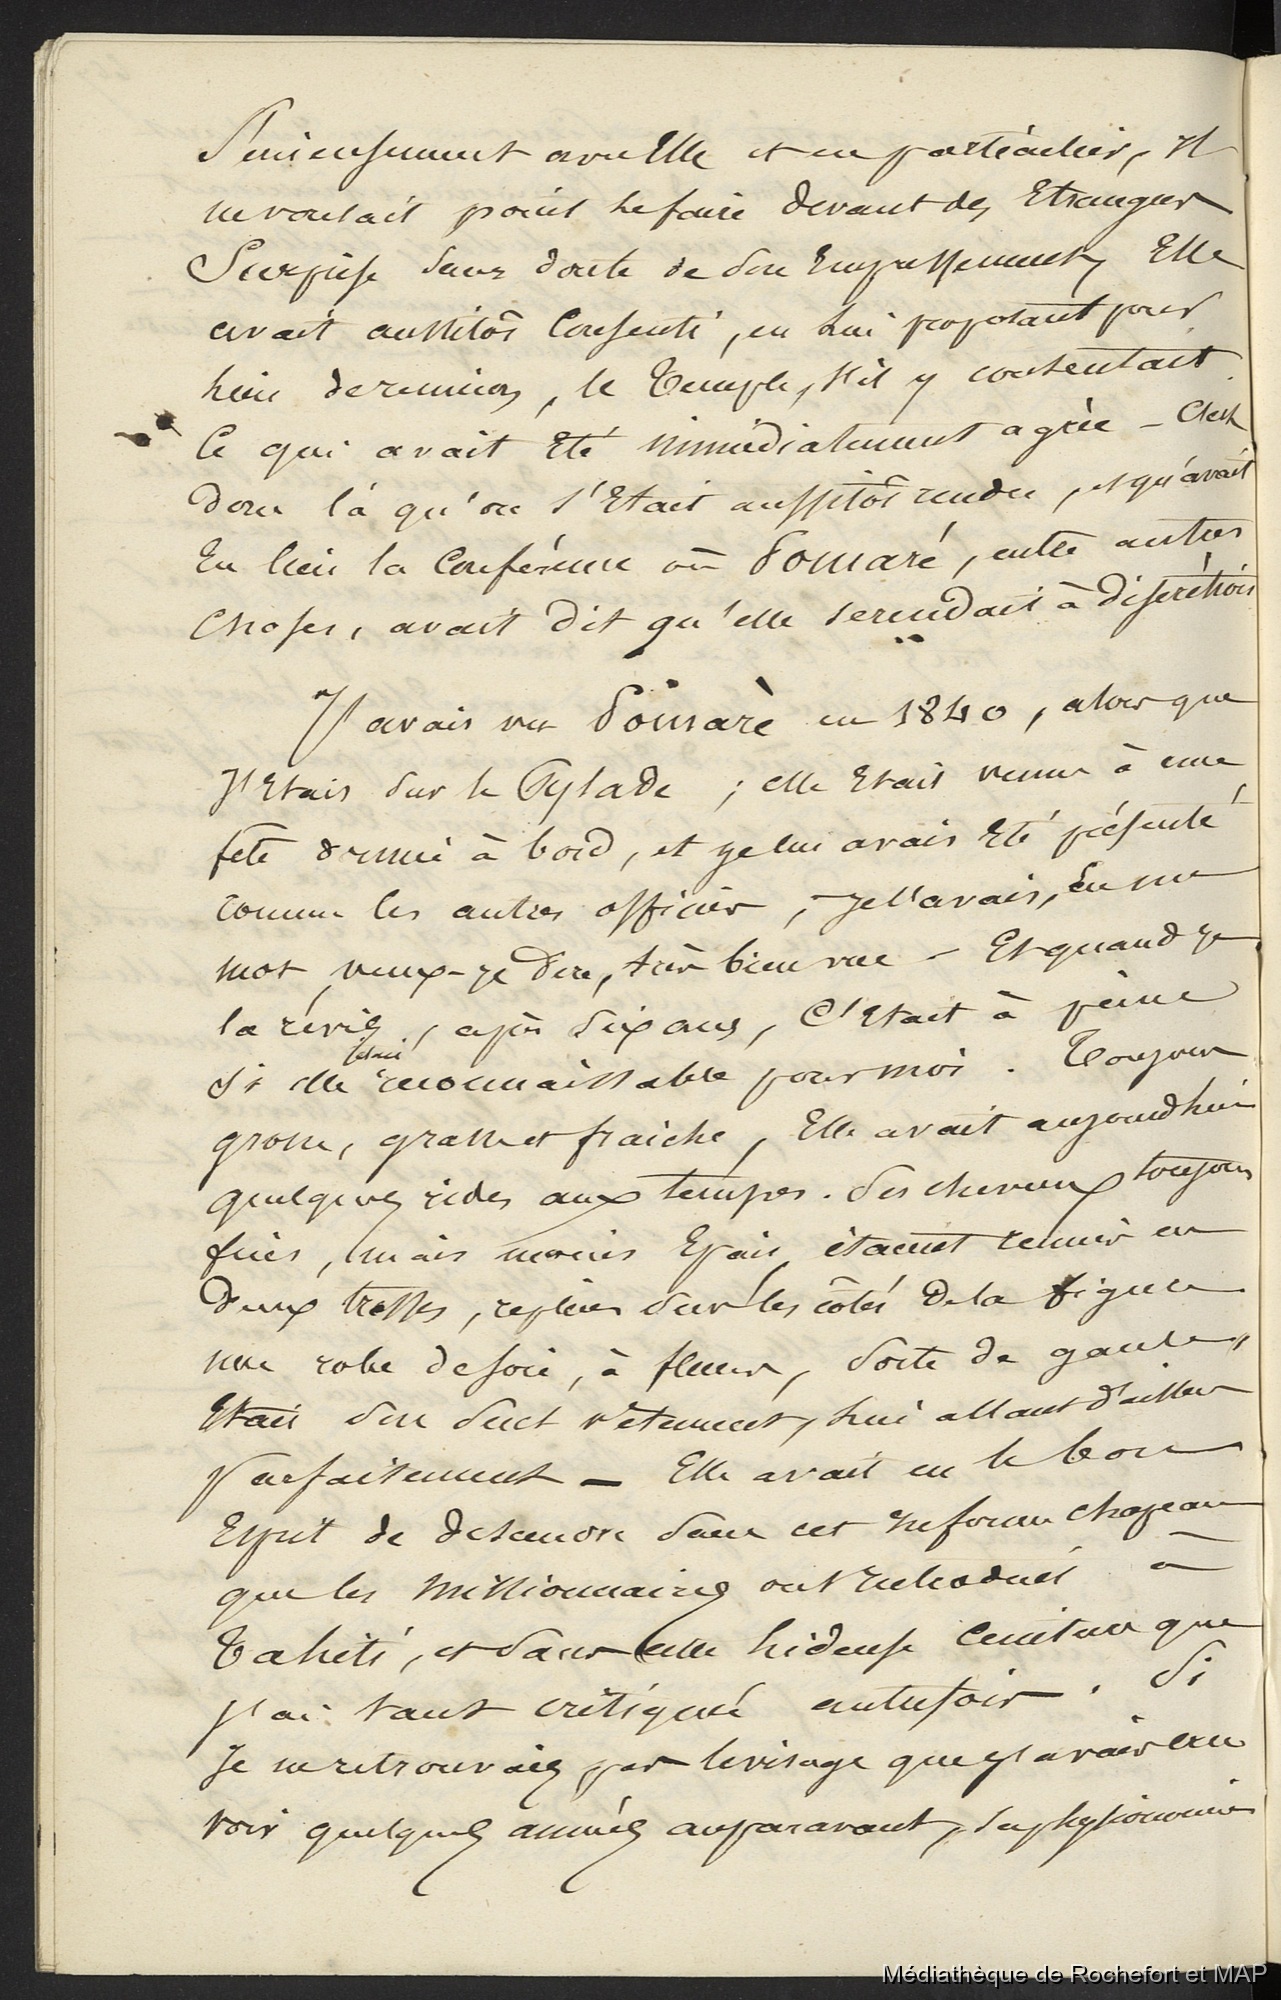 Sérieusement avec Elle et en particulier, Il
ne voulait point le faire devant des Etrangers
Surprise sans doute de son Empressement, Elle
avait aussitôt Consenti, en lui proposant pour
lieu de reunion, le Temple, s'il y consentait
Ce qui avait été immédiatement agrée – C'est
donc là qu'on s'Etait aussitôt rendu, et qu'avait
Eu lieu la Conférence où Pomaré, entre autres
Choses, avait dit qu'elle se rendait à discrétion
J'avais vu Pomarè en 1840, alors que
J'Etais sur le Pylade ; elle Etait venue à une
fête donnée à bord, et je lui avais Eté présenté
comme les autres officiers, – Je l'avais, En un
mot, veux-je dire, très bien vue – Et quand je
la révis, après six ans, C'Etait à peine
si elle était reconnaissable pour moi . Toujours
grosse, grasse et fraiche, Elle avait aujourd'hui
quelques rides aux tempes . Ses cheveux toujours
fins, mais moins Epais, étaient reunis en
deux tresses, repliées sur les côtés de la figure
une robe de soie, à fleurs, sorte de gaule,
Etait son seul vêtement, lui allant d'ailleurs
Parfaitement – Elle avait eu le bon
Esprit de descendre sans cet informe chapeau
que les Missionnaires ont introduit à
Tahiti, et sans cette hideuse Ceinture que
J'ai tant critiquée autrefois . Si
Je ne retrouvais pas le visage que J'avais cru
voir quelques années auparavant, sa physionomie
Médiathèque de Rochefort et MAP